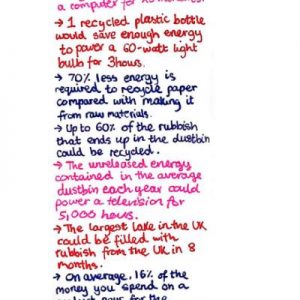 a computer for 25 minutes.
→ 1 recycled plastic bottle
would save enough energy
to power a 60-watt light
bulb for 3hours.
→ 70% less energy is
required to recycle paper
compared with making it
from raw materials.
→ Up to 60% of the rubbish
that ends up in the dustbin
could be recycled.
→ The unreleased energy
contained in the average
dustbin each year could
power a television for
5,000 hours.
→ The largest lake in the UK
could be filled with
rubbish from the UK in 8
months.
→ On average, 16% of the
money you spend on a
for the